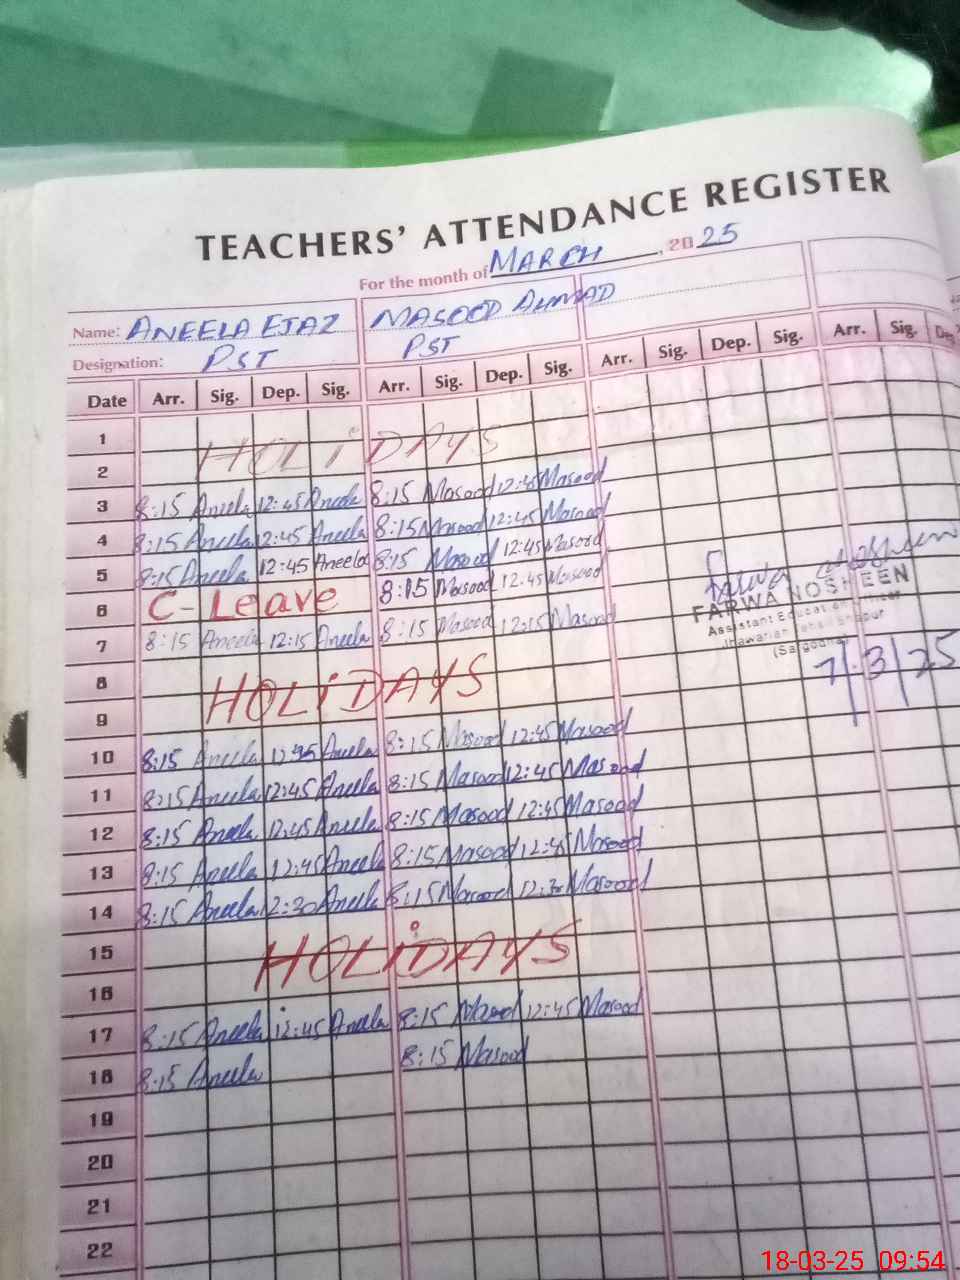 TEACHERS' ATTENDANCE REGISTER
For the month of MARCH, 2025
Name: ANEELA EJAZ MASOOD AHMAD
Designation: PST PST
Date Arr. Sig. Dep. Sig. Arr. Sig. Dep. Sig. Arr. Sig. Dep. Sig. Arr. Sig.
1
HOLIDAYS
2
3 8:15 Aneela 12:45 Aneela 8:15 Masood 12:45 Masood
4 8:15 Aneela 12:45 Aneela 8:15 Masood 12:45 Masood
5 8:15 Aneela 12:45 Aneela 8:15 Masood 12:45 Masood
6 C-Leave 8:15 Masood 12:45 Masood
7 8:15 Aneela 12:15 Aneela 8:15 Masood 12:15 Masood
Farwa Nosheen
FARWA NOSHEEN
Assistant Education Officer
Jhawarian Tehsil Shahpur
(Sargodha)
7/3/25
8
HOLIDAYS
9
10 8:15 Aneela 12:45 Aneela 8:15 Masood 12:45 Masood
11 8:15 Aneela 12:45 Aneela 8:15 Masood 12:45 Masood
12 8:15 Aneela 12:45 Aneela 8:15 Masood 12:45 Masood
13 8:15 Aneela 12:45 Aneela 8:15 Masood 12:45 Masood
14 8:15 Aneela 12:30 Aneela 8:15 Masood 12:30 Masood
15
HOLIDAYS
16
17 8:15 Aneela 12:45 Aneela 8:15 Masood 12:45 Masood
18 8:15 Aneela 8:15 Masood
19
20
21
22
18-03-25 09:54